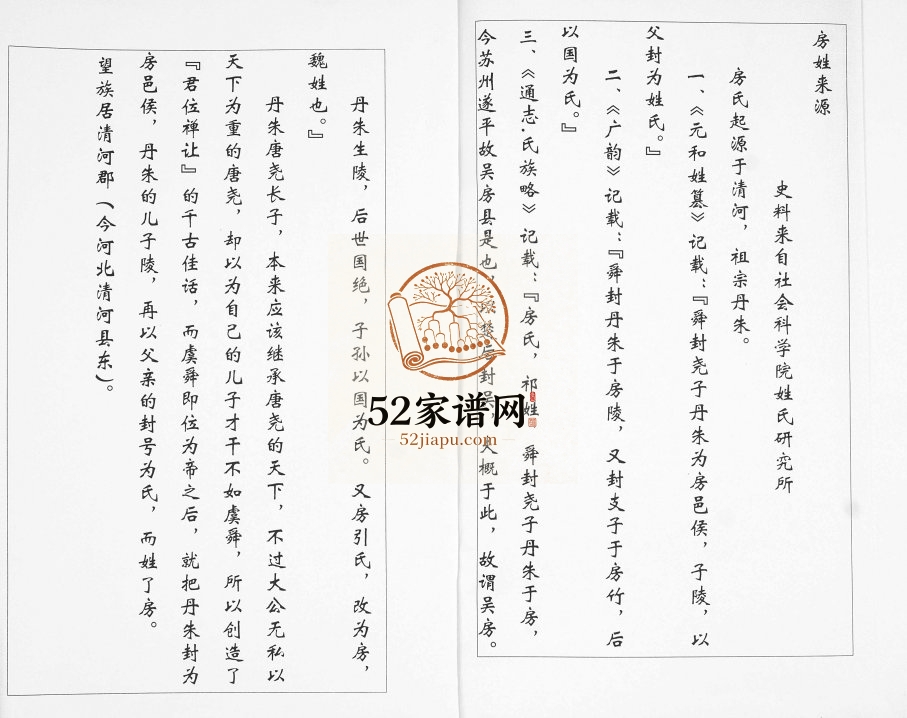 房姓来源
史料来自社会科学院姓氏研究所
房氏起源于清河，祖宗丹朱。
一、《元和姓篡》记载：『舜封尧子丹朱为房邑侯，子陵，以
父封为姓氏。』
二、《广韵》记载：『舜封丹朱于房陵，又封支子于房竹，后
以国为氏。』
三、《通志.氏族略》记载：『房氏，祁姓 舜封尧子丹朱于房，
今苏州遂平故吴房县是也，封吴，大概于此，故谓吴房。
丹朱生陵，后世国绝，子孙以国为氏。又房引氏，改为房，
魏姓也。』
丹朱唐尧长子，本来应该继承唐尧的天下，不过大公无私以
天下为重的唐尧，却以为自己的儿子才干不如虞舜，所以创造了
『君位禅让』的千古佳话，而虞舜即位为帝之后，就把丹朱封为
房邑侯，丹朱的儿子陵，再以父亲的封号为氏，而姓了房。
望族居清河郡（今河北清河县东）。
52家谱网
52jiapu.com